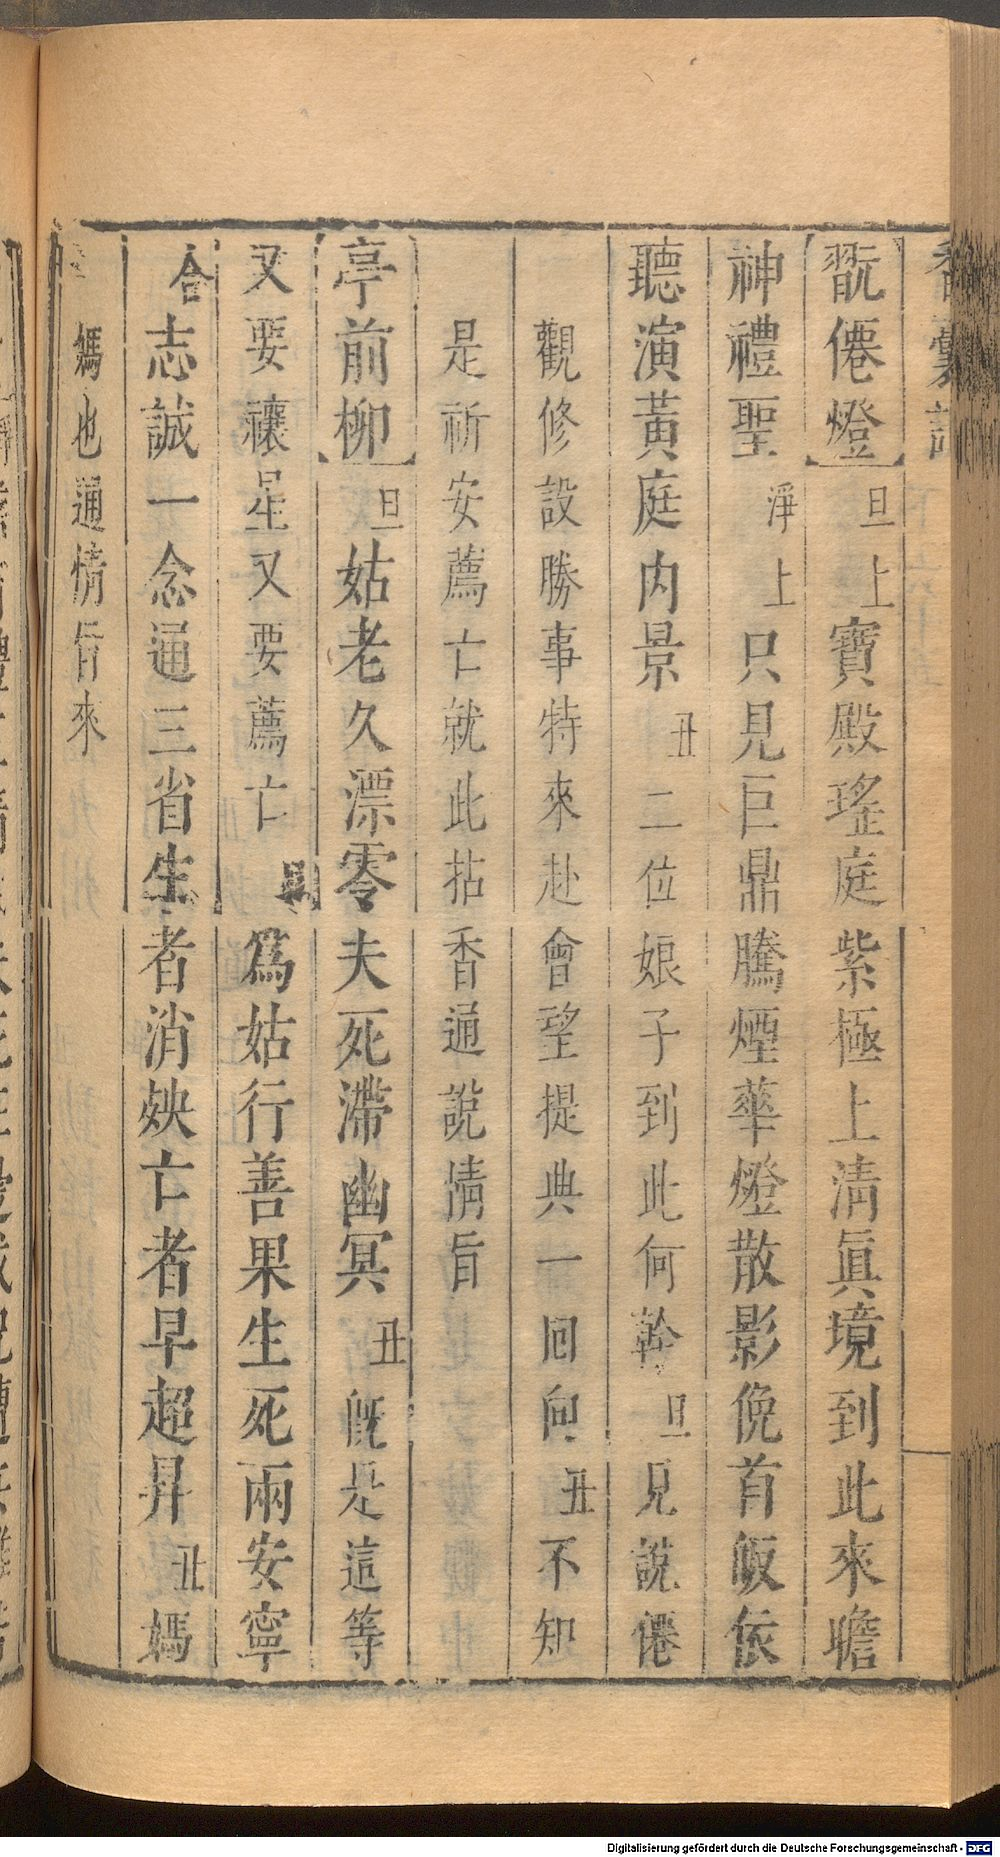 香囊記
翫僊燈 旦上寶殿瑤庭紫極上淸眞境到此來瞻
神禮聖 淨上只見巨鼎騰煙華燈散影俛首皈依
聽演黃庭內景 丑二位娘子到此何幹 旦見說僊
觀修設勝事特來赴會望提典一回向 丑不知
是祈安薦亡就此拈香通說情旨
亭前柳 旦姑老久漂零夫死滯幽冥 丑旣是這等
又要禳星又要薦亡 爲姑行善果生死兩安寧
合志誠一念通三省生者消殃亡者早超昇 丑媽
媽也通情旨來
Digitalisierung gefördert durch die Deutsche Forschungsgemeinschaft - DFG